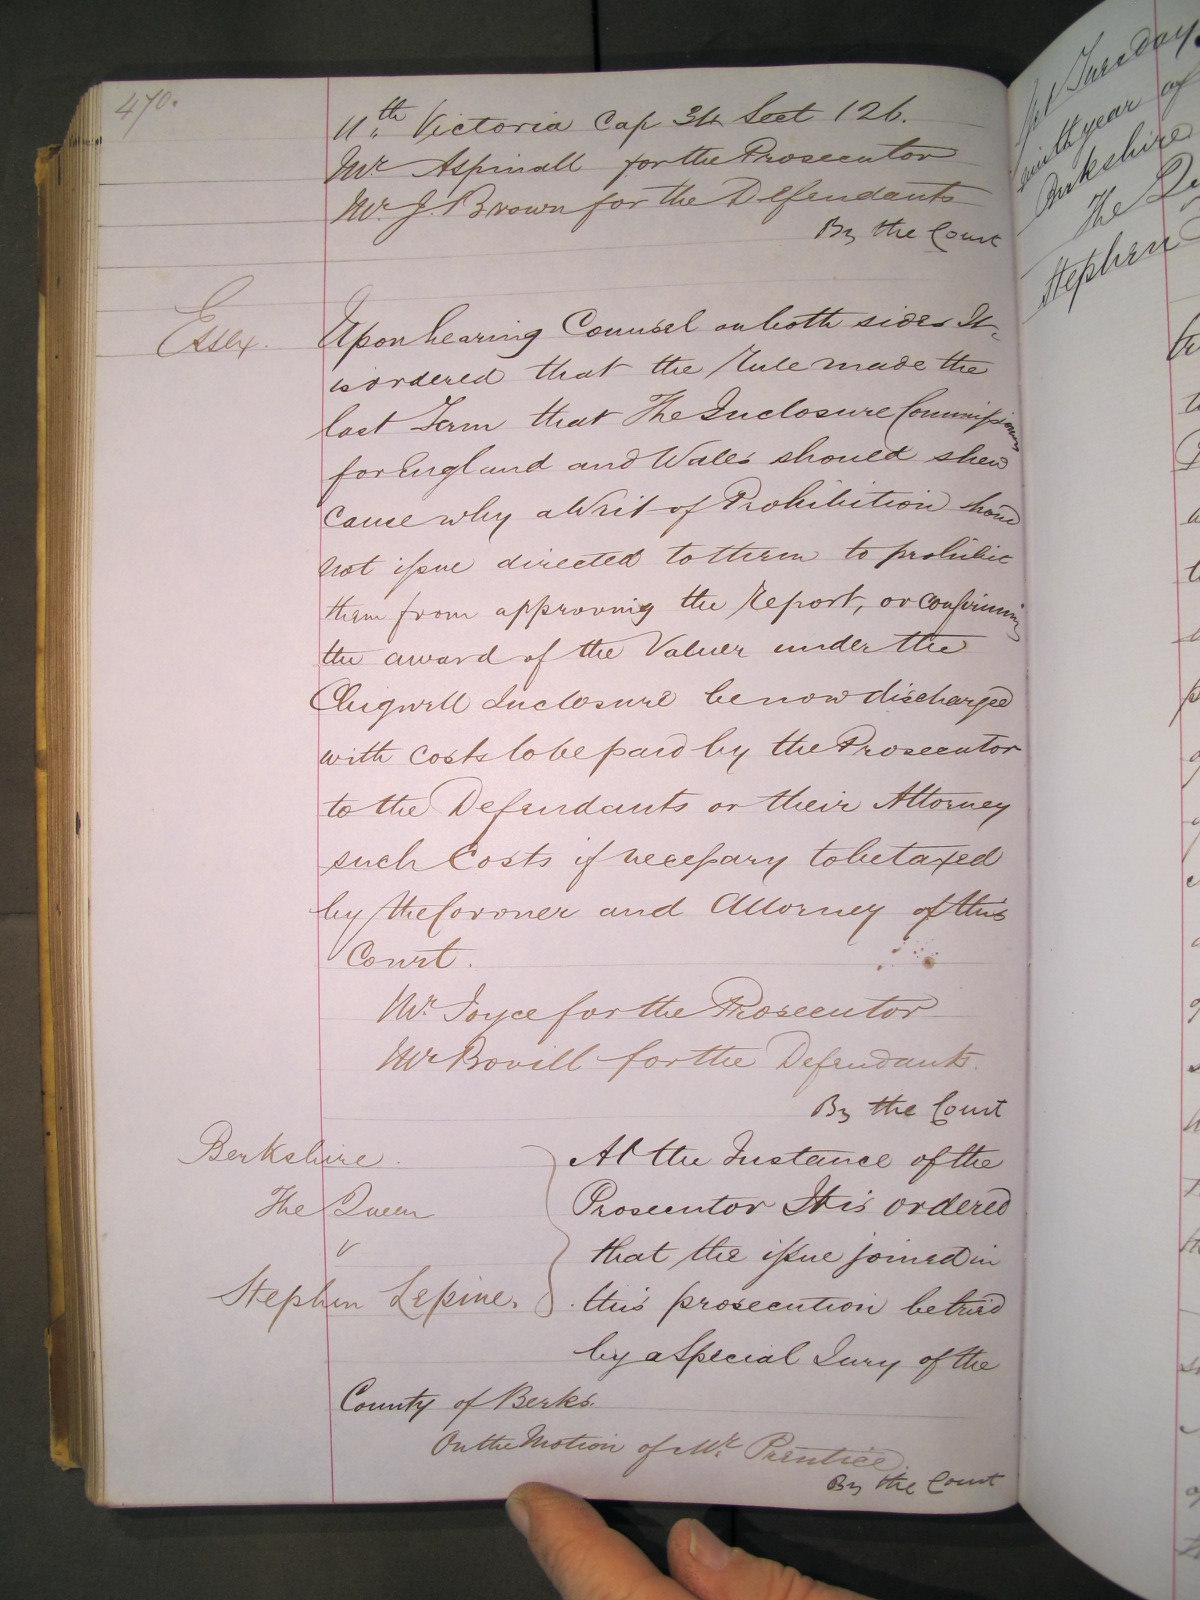 470.
11th Victoria Cap 34 Sect 126.
Mr Aspinall for the Prosecutor
Mr. J. Brown for the Defendants
By the Court
Essex.
Upon hearing Counsel on both sides It
is ordered that the Rule made the
last Term that The Inclosure Commissioners
for England and Wales should shew
Cause why a Writ of Prohibition should
not issue directed to them to prohibit
them from approving the Report, or confirming
the award of the Valuer under the
Chigwell Inclosure be now discharged
with costs to be paid by the Prosecutor
to the Defendants or their Attorney
such Costs if necessary to be taxed
by the Coroner and Attorney of this
Court.
Mr. Joyce for the Prosecutor
Mr Bovill for the Defendants.
By the Court
Berkshire.
The Queen
v
Stephen Lepine.
At the Instance of the
Prosecutor It is ordered
that the issue joined in
this prosecution be tried
by a Special Jury of the
County of Berks.
On the Motion of Mr. Prentice.
By the Court
Tuesday
ninth year of
Berkshire
The
Stephen